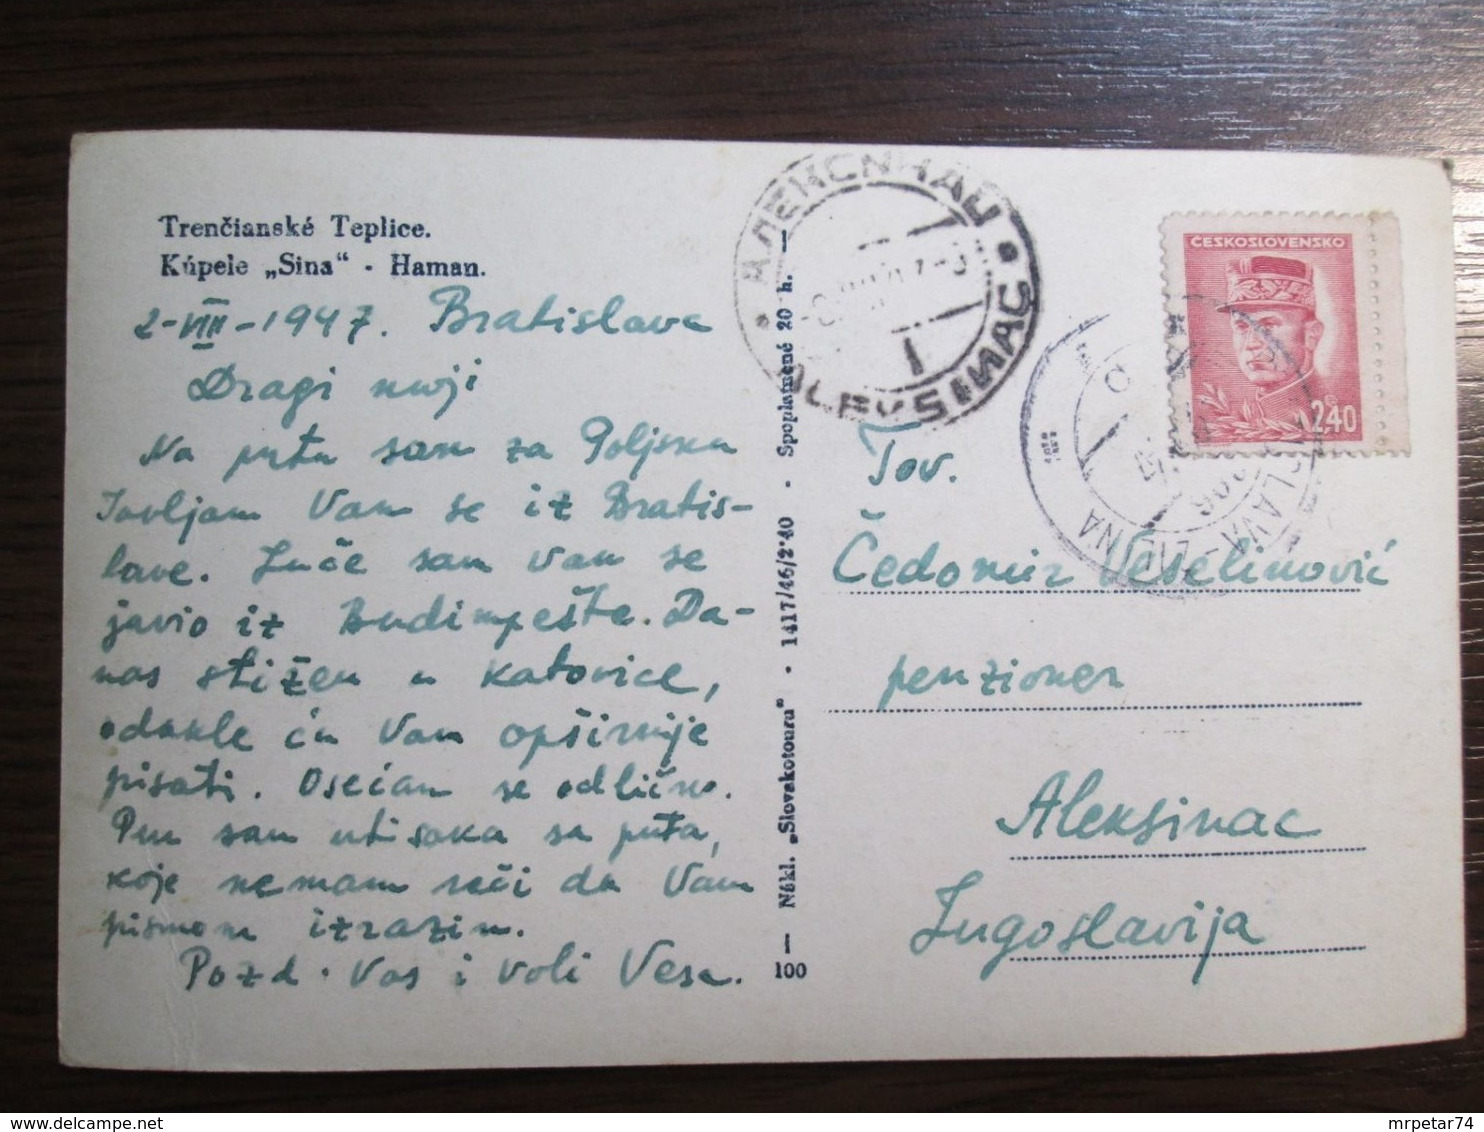 Trenčianské Teplice.
Kúpele „Sina“ - Haman.
2-VIII-1947. Bratislava
Dragi moji
Na putu sam za Poljsku
Javljam Vam se iz Bratis-
lave. Juče sam Vam se
javio iz Budimpešte. Da-
nas stižem u Katovice,
odakle ću Vam opširnije
pisati. Osećam se odlično.
Pun sam utisaka sa puta,
koje nemam reči da Vam
pismom izrazim.
Pozd. Vas i voli Vesa.
100 — Nákl. „Slovakotouru“ · 1417/46/2'40 · Spoplamené 20 h. —
АЛЕКСИНАЦ
ALEKSINAC
1
ČESKOSLOVENSKO
2.40
ŽILINA
Tov.
Čedomir Veselinović
penzioner
Aleksinac
Jugoslavija
mrpetar74